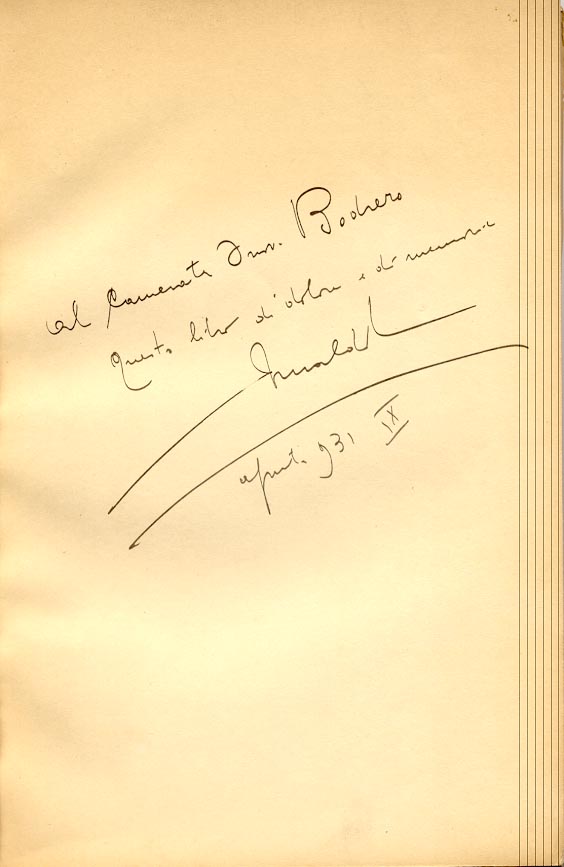 Al Camerata Bodrero
questo libro di dolore e di memoria
Arnaldo
931 IX